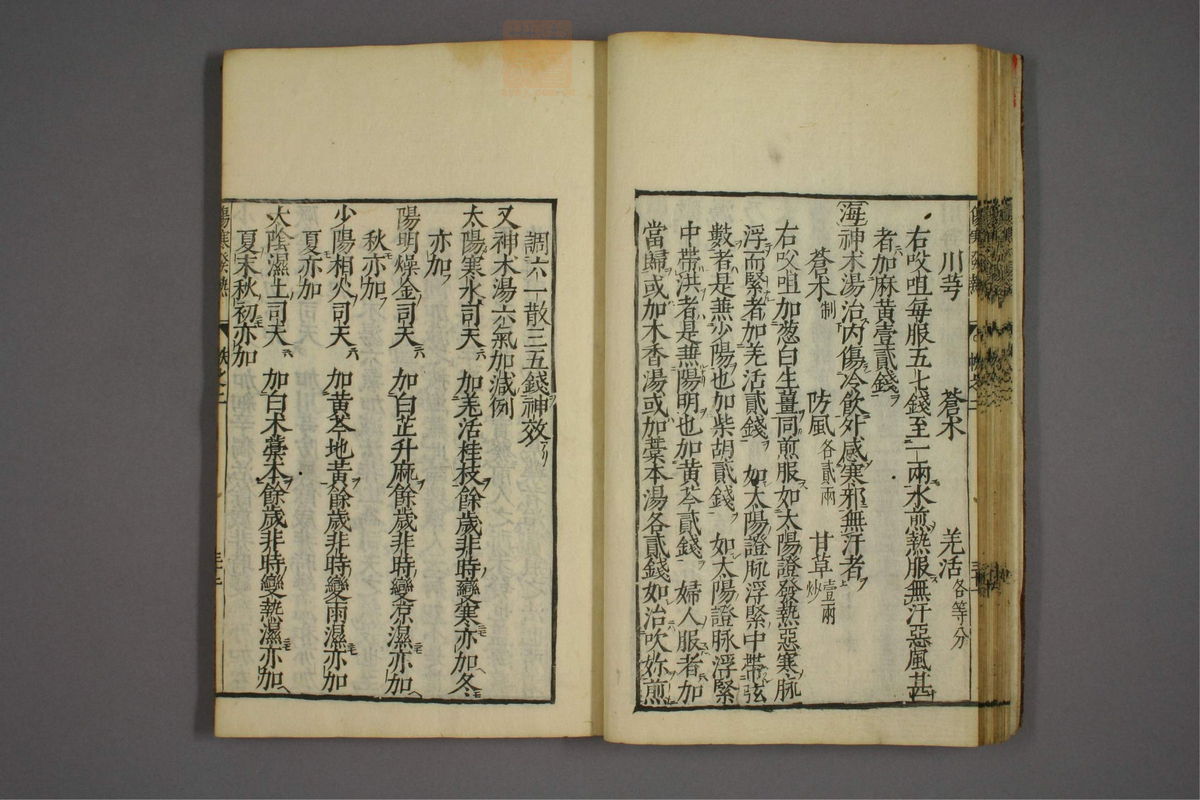 川芎 蒼朮 羌活各等分
右㕮咀每服五七錢至一兩水煎熱服無汗惡風甚
者加麻黃壹貳錢
海神朮湯治內傷冷飲外感寒邪無汗者
蒼朮制 防風各貳兩 甘草壹兩炒
右㕮咀加葱白生薑同煎服如太陽證發熱惡寒脉
浮而緊者加羌活貳錢 如太陽證脉浮緊中帶弦
數者是兼少陽也加柴胡貳錢 如太陽證脉浮緊
中帶洪者是兼陽明也加黃芩貳錢 婦人服者加
當歸或加木香湯或加藁本湯各貳錢如治吹妳煎
調六一散三五錢神效
又神朮湯六氣加減例
太陽寒水司天 加羌活桂枝餘歲非時變寒亦加冬
亦加
陽明燥金司天 加白芷升麻餘歲非時變凉濕亦加
秋亦加
少陽相火司天 加黃芩地黃餘歲非時變雨濕亦加
夏亦加
太陰濕土司天 加白朮藁本餘歲非時變熱濕亦加
夏末秋初亦加